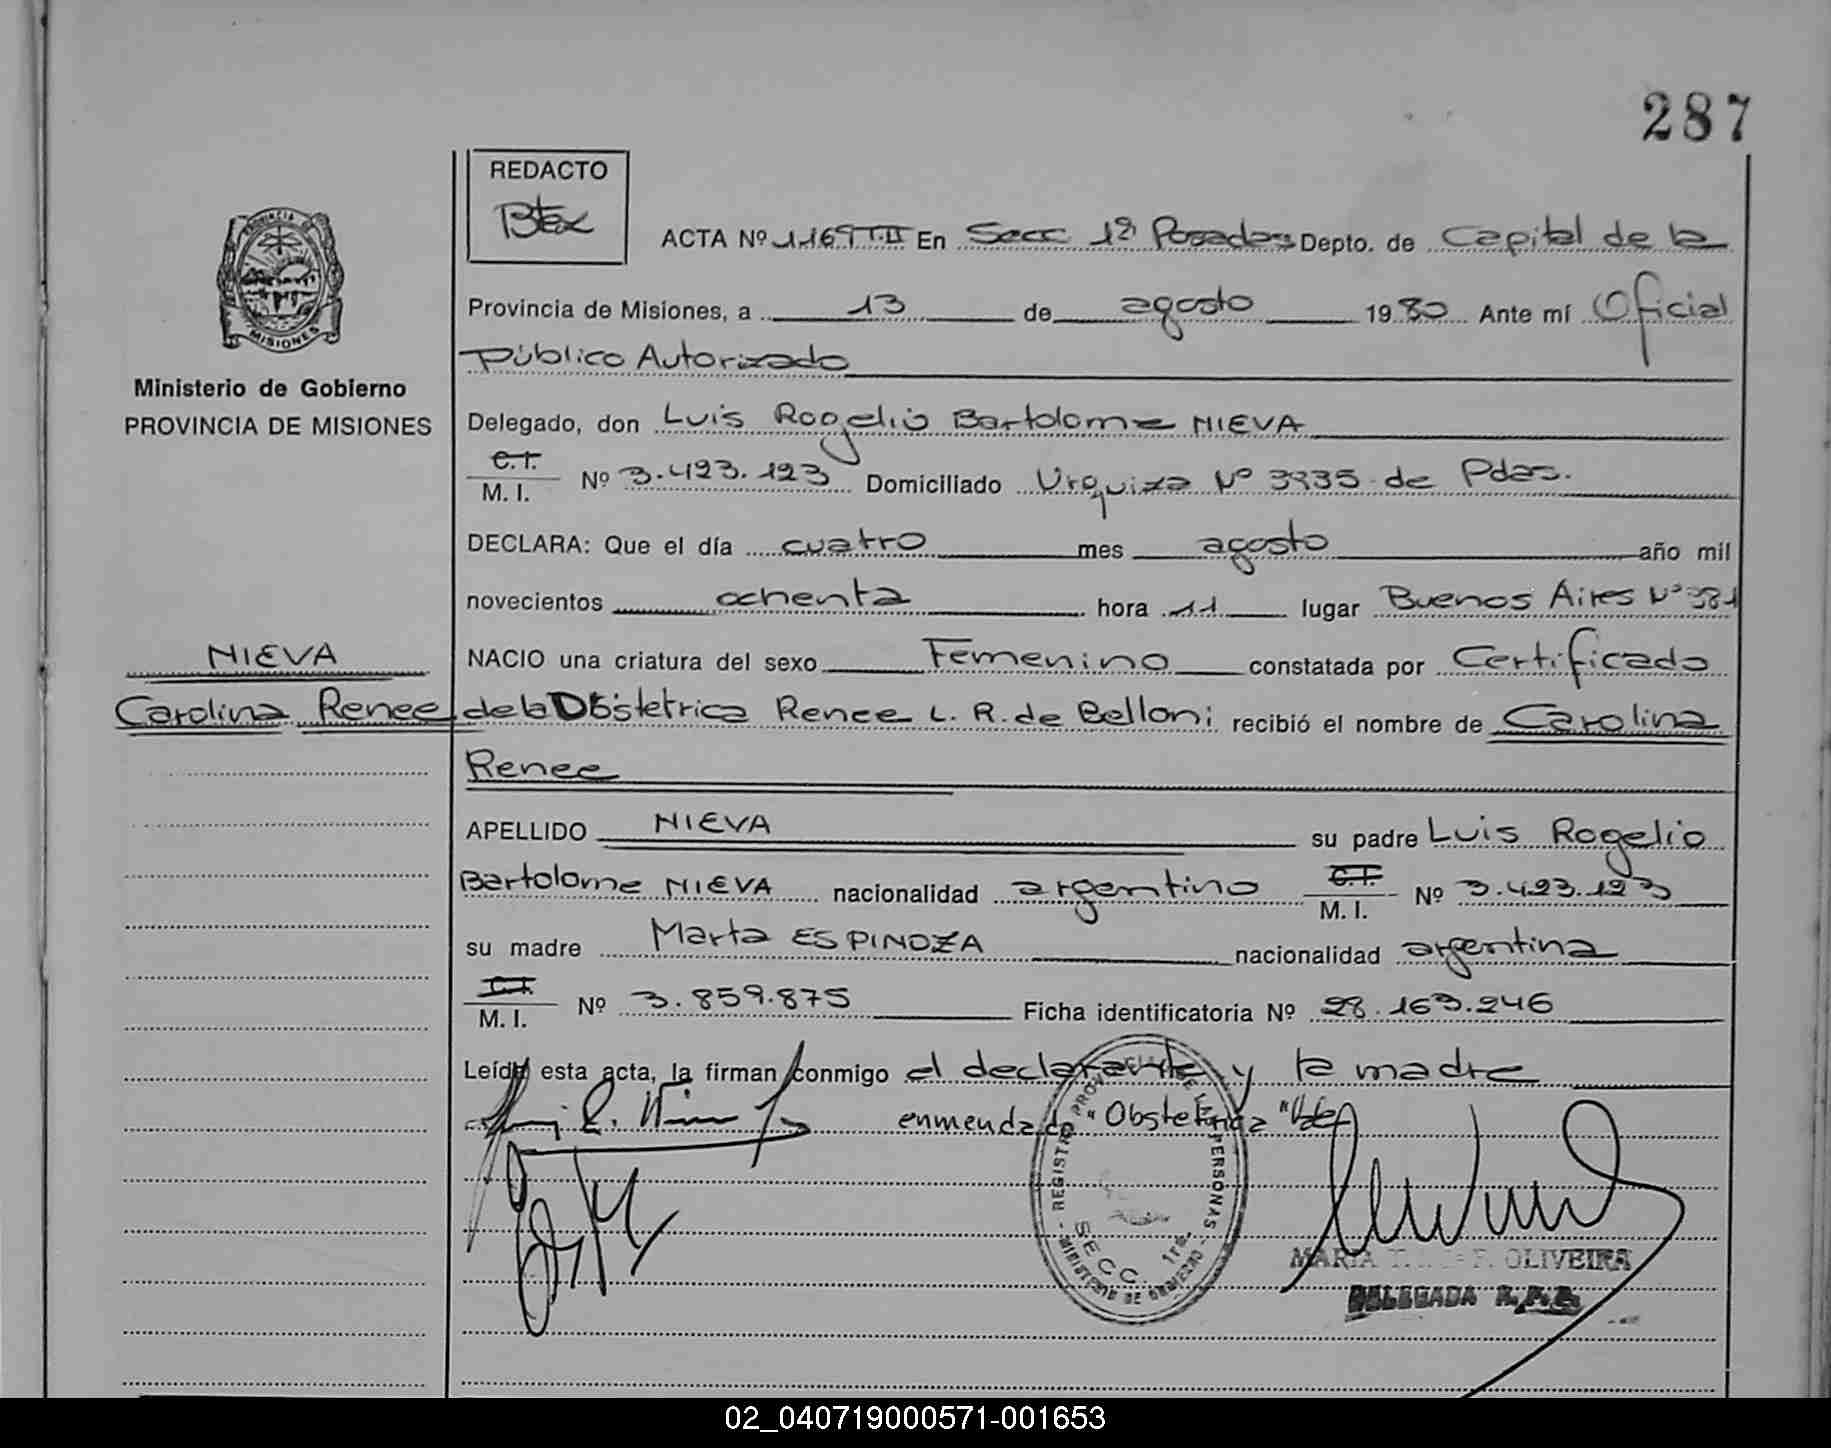 287
REDACTO
Btex
ACTA Nº 1169 T.II En Secc 1ª Posadas Depto. de Capital de la
Provincia de Misiones, a 13 de agosto 1980 Ante mí Oficial
Público Autorizado
PROVINCIA
MISIONES
Ministerio de Gobierno
PROVINCIA DE MISIONES
Delegado, don Luis Rogelio Bartolome NIEVA
C.I.
M. I. Nº 3.423.123 Domiciliado Urquiza Nº 3935 de Pdas.
DECLARA: Que el día cuatro mes agosto año mil
novecientos ochenta hora 11 lugar Buenos Aires Nº 381
NACIO una criatura del sexo Femenino constatada por Certificado
NIEVA
Carolina Renee
de la Obstetrica Renee L. R. de Belloni recibió el nombre de Carolina
Renee
APELLIDO NIEVA su padre Luis Rogelio
Bartolome NIEVA nacionalidad argentino C.I. M. I. Nº 3.423.123
su madre Marta ESPINOZA nacionalidad argentina
C.I.
M. I. Nº 3.859.875 Ficha identificatoria Nº 28.163.246
Leída esta acta, la firman conmigo el declarante y la madre
enmendado "Obstetrica" Vale
REGISTRO PROVINCIAL DE LAS PERSONAS
SECC. 1ra.
MINISTERIO DE GOBIERNO
MARIA T. F. OLIVEIRA
DELEGADA R.P.P.
02_040719000571-001653